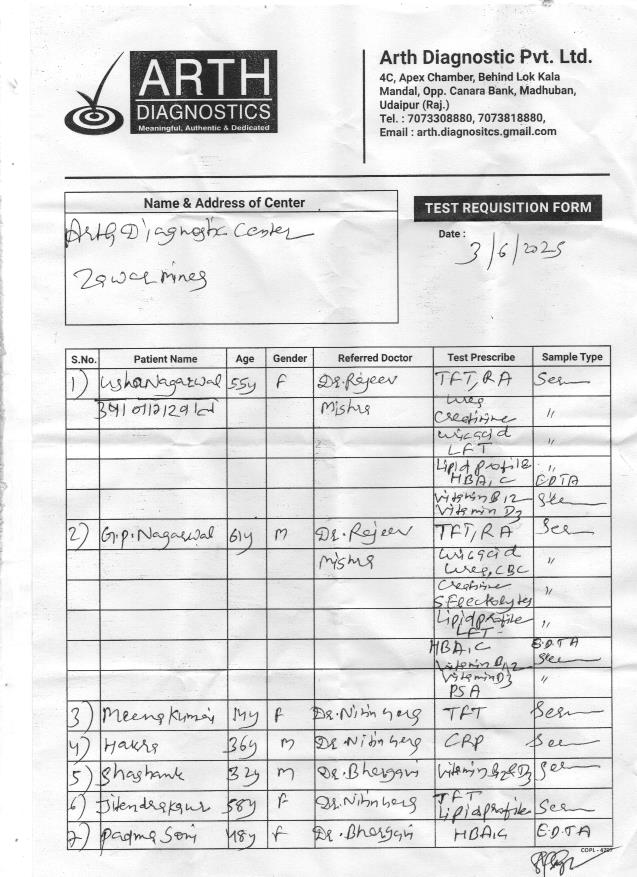 ARTH
DIAGNOSTICS
Meaningful, Authentic & Dedicated
Arth Diagnostic Pvt. Ltd.
4C, Apex Chamber, Behind Lok Kala
Mandal, Opp. Canara Bank, Madhuban,
Udaipur (Raj.)
Tel. : 7073308880, 7073818880,
Email : arth.diagnositcs.gmail.com
Name & Address of Center
Arth Diagnostic Center
Zawar mines
TEST REQUISITION FORM
Date : 3/6/2025
S.No. Patient Name Age Gender Referred Doctor Test Prescribe Sample Type
1) Usha Nagarwal 55y F Dr. Rajeev TFT, RA
Mishra Urea
Creatinine "
Uric acid
LFT "
Lipid profile "
HBA1C EDTA
Vitamin B12
Vitamin D3
2) G.P. Nagarwal 61y M Dr. Rajeev TFT, RA
Mishra Uric acid "
Urea, CBC
Creatinine
S Electolytes "
Lipid profile "
LFT
HBA1C E.D.TA
Vitamin B12
Vitamin D3 "
PSA
3) Meena Kumari 14y F Dr. Nitin TFT
4) Hakra 36y M Dr. Nitin CRP
5) Shashank 32y M Dr. Bhargavi
6) 58y F Dr. Nitin TFT
Lipid profile
7) Padma Soni 48y F Dr. Bhargavi HBA1C E.D.TA
COPL - 4297